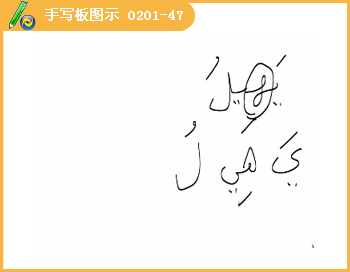 手写板图示 0201-47
يَهِيلُ
يَ هِي لُ